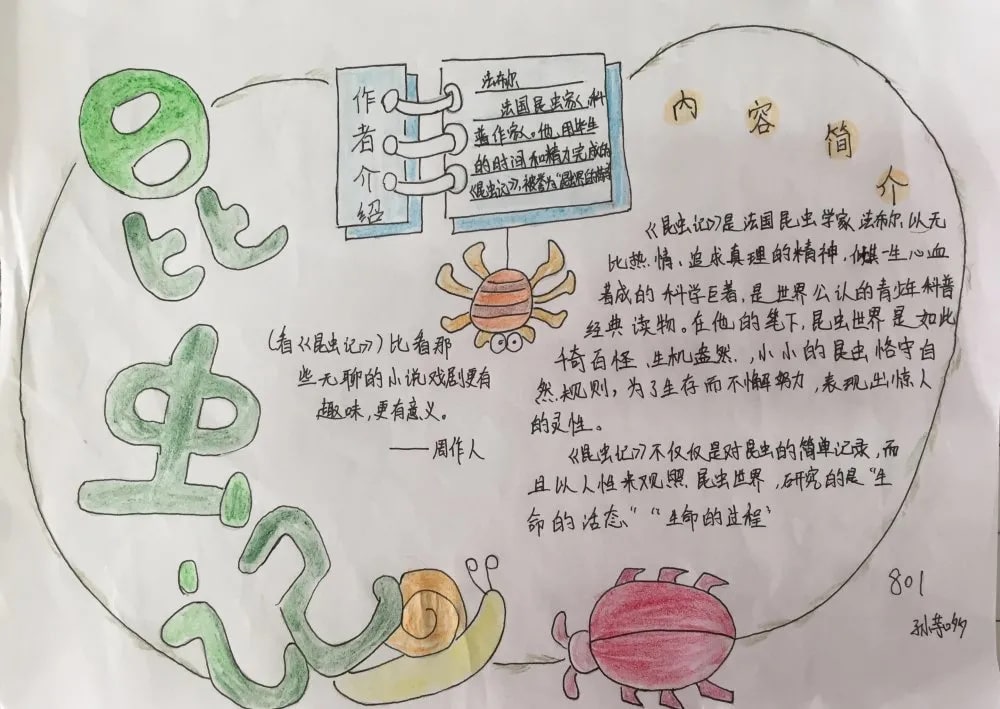 昆虫记
作者介绍
法布尔
法国昆虫家、科
普作家。他用毕生
的时间和精力完成的
《昆虫记》,被誉为"
内容简介
《昆虫记》是法国昆虫学家法布尔,以无
比热情、追求真理的精神,倾一生心血
著成的科学巨著,是世界公认的青少年科普
经典读物。在他的笔下,昆虫世界是如此
千奇百怪、生机盎然,,小小的昆虫恪守自
然规则,为了生存而不懈努力,表现出惊人
的灵性。
《昆虫记》不仅仅是对昆虫的简单记录,而
且以人性来观照昆虫世界,研究的是"生
命的活态""生命的过程"
(看《昆虫记》)比看那
些无聊的小说戏剧更有
趣味,更有意义。
——周作人
801
孙